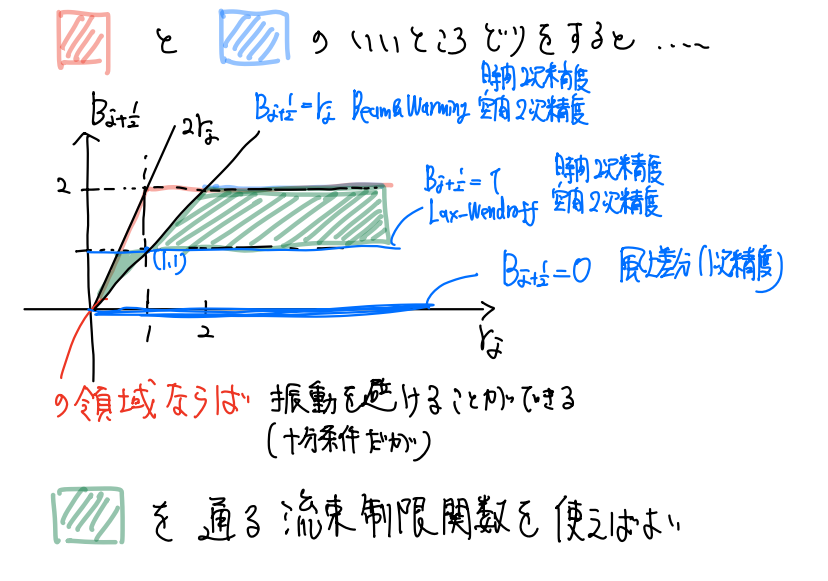 と の いいところどりをすると .....
B_{j+1/2}
2r_j
B_{j+1/2} = r_j Beam & Warming 時間2次精度
空間2次精度
2
B_{j+1/2} = 1
Lax-Wendroff
時間2次精度
空間2次精度
(1,1)
B_{j+1/2} = 0 風上差分(1次精度)
1
2
r_j
の領域ならば 振動を避けることができる
(十分条件だが)
を通る流束制限関数を使えばよい